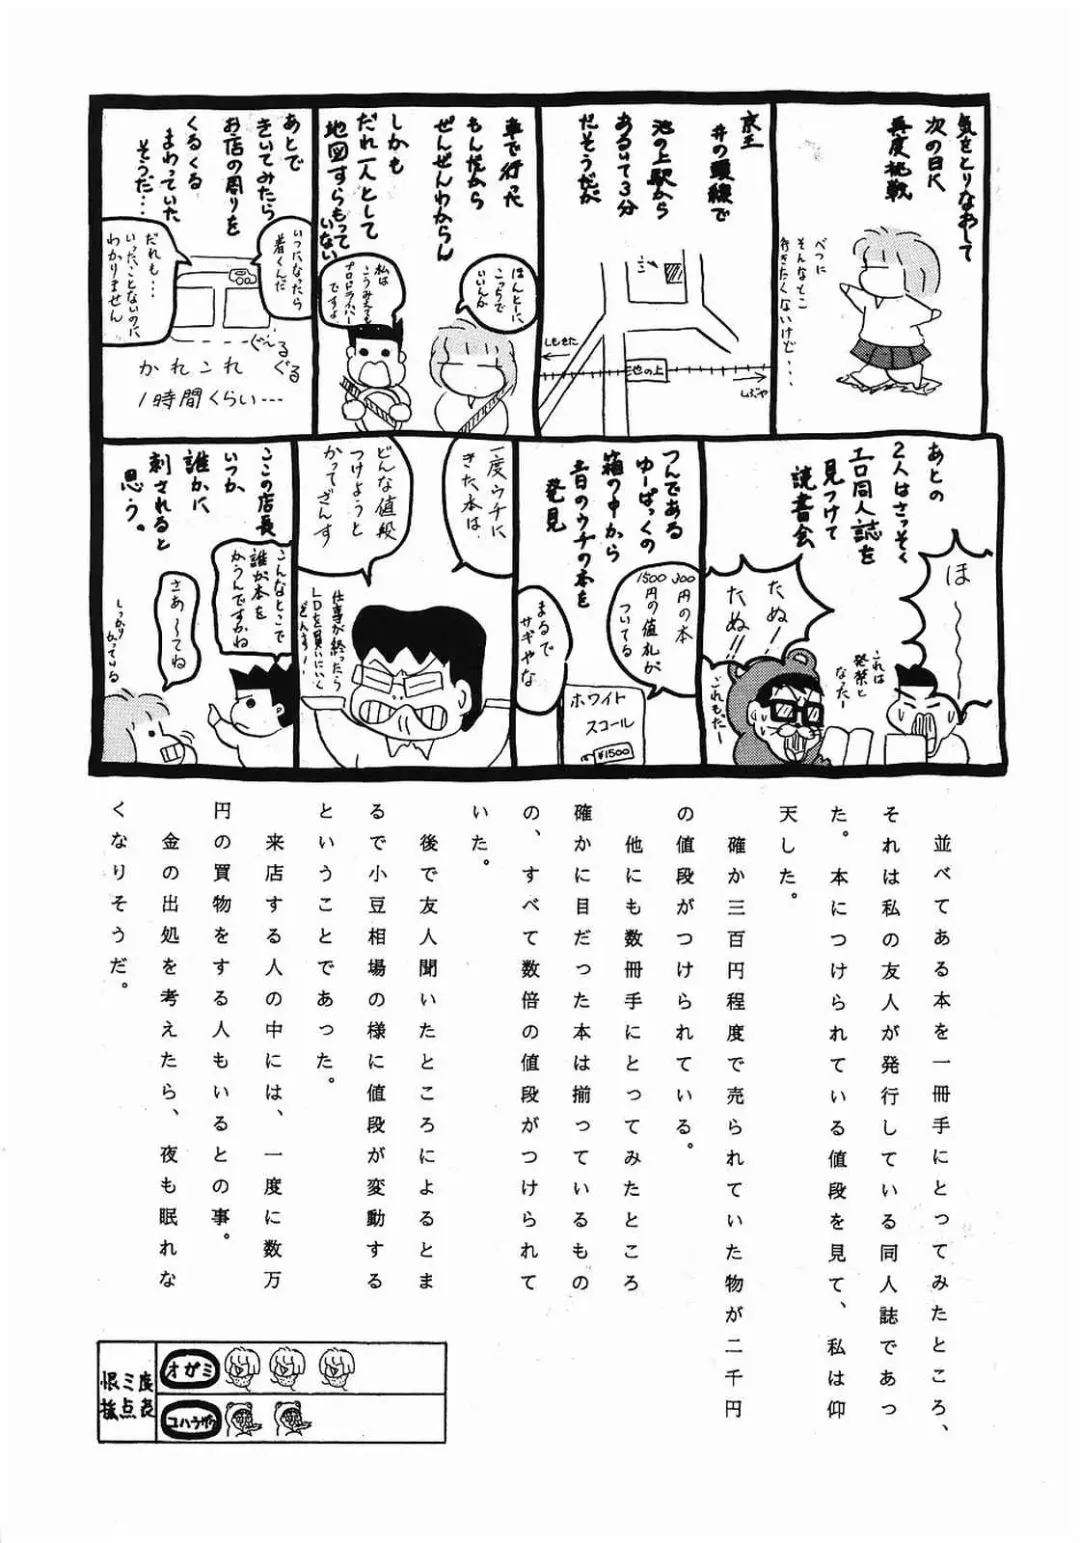 気をとりなおして
次の日に
再度挑戦
べつに
そんなとこ
行きたくないけど・・・
京王
井の頭線で
池の上駅から
あるいて3分
だそうだが
ココ
しもきた
池の上
しぶや
車で行った
もんだから
ぜんぜんわからん
しかも
だれ一人として
地図すらもって
いない
ほんとに
こっちで
いいんか
私は
こうみえても
プロドライバー
ですよ
あとで
きいてみたら
お店の周りを
くるくる
まわっていた
そうだ・・・
いつになったら
着くんだ
だれも・・・
いったことないのに
わかりません
ぐ〜るぐる
かれこれ
1時間くらい・・・
あとの
2人はさっそく
エロ同人誌を
見つけて
読書会
ほ〜〜
これは
発禁と
なったー
たぬー
たぬ!!
これもだー
つんである
ゆーぱっくの
箱の中から
昔のウチの本を
発見
300円の本
1500円の値札が
ついてる
まるで
サギやな
ホワイト
スコール
¥1500
一度ウチに
きた本は、
どんな値段
つけようと
かってざんす
仕事が終ったら
LDを買いにいく
ざんす!
ここの店長
いつか
誰かに
刺されると
思う。
こんなとこで
誰が本を
かうんですかね
さあ〜てね
しっかり
かっている
並べてある本を一冊手にとってみたところ、
それは私の友人が発行している同人誌であっ
た。本につけられている値段を見て、私は仰
天した。
確か三百円程度で売られていた物が二千円
の値段がつけられている。
他にも数冊手にとってみたところ
確かに目だった本は揃っているもの
の、すべて数倍の値段がつけられて
いた。
後で友人聞いたところによるとま
るで小豆相場の様に値段が変動する
ということであった。
来店する人の中には、一度に数万
円の買物をする人もいるとの事。
金の出処を考えたら、夜も眠れな
くなりそうだ。
恨ミ度
採点表
オガミ
ユハラザワ